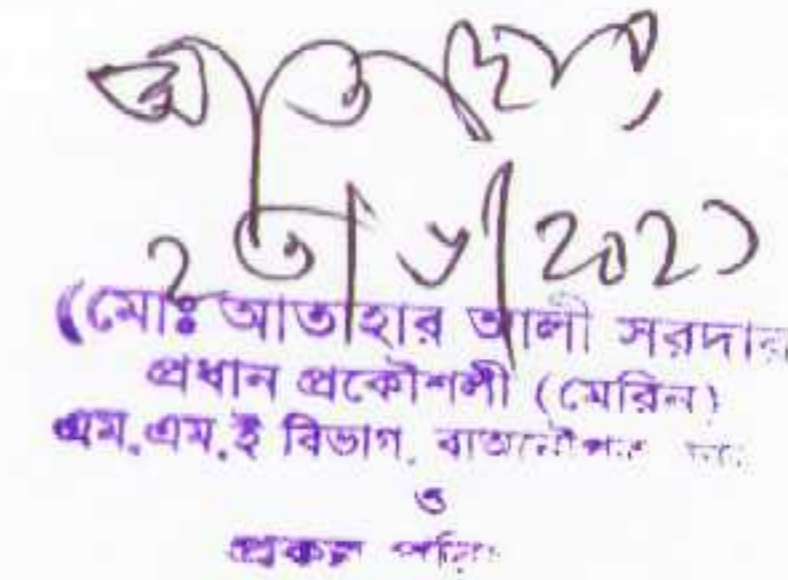 ২৩/৬/২০২১
(মোঃ আতাহার আলী সরদার
প্রধান প্রকৌশলী (মেরিন)
এম.এম.ই বিভাগ,
ও
প্রকল্প